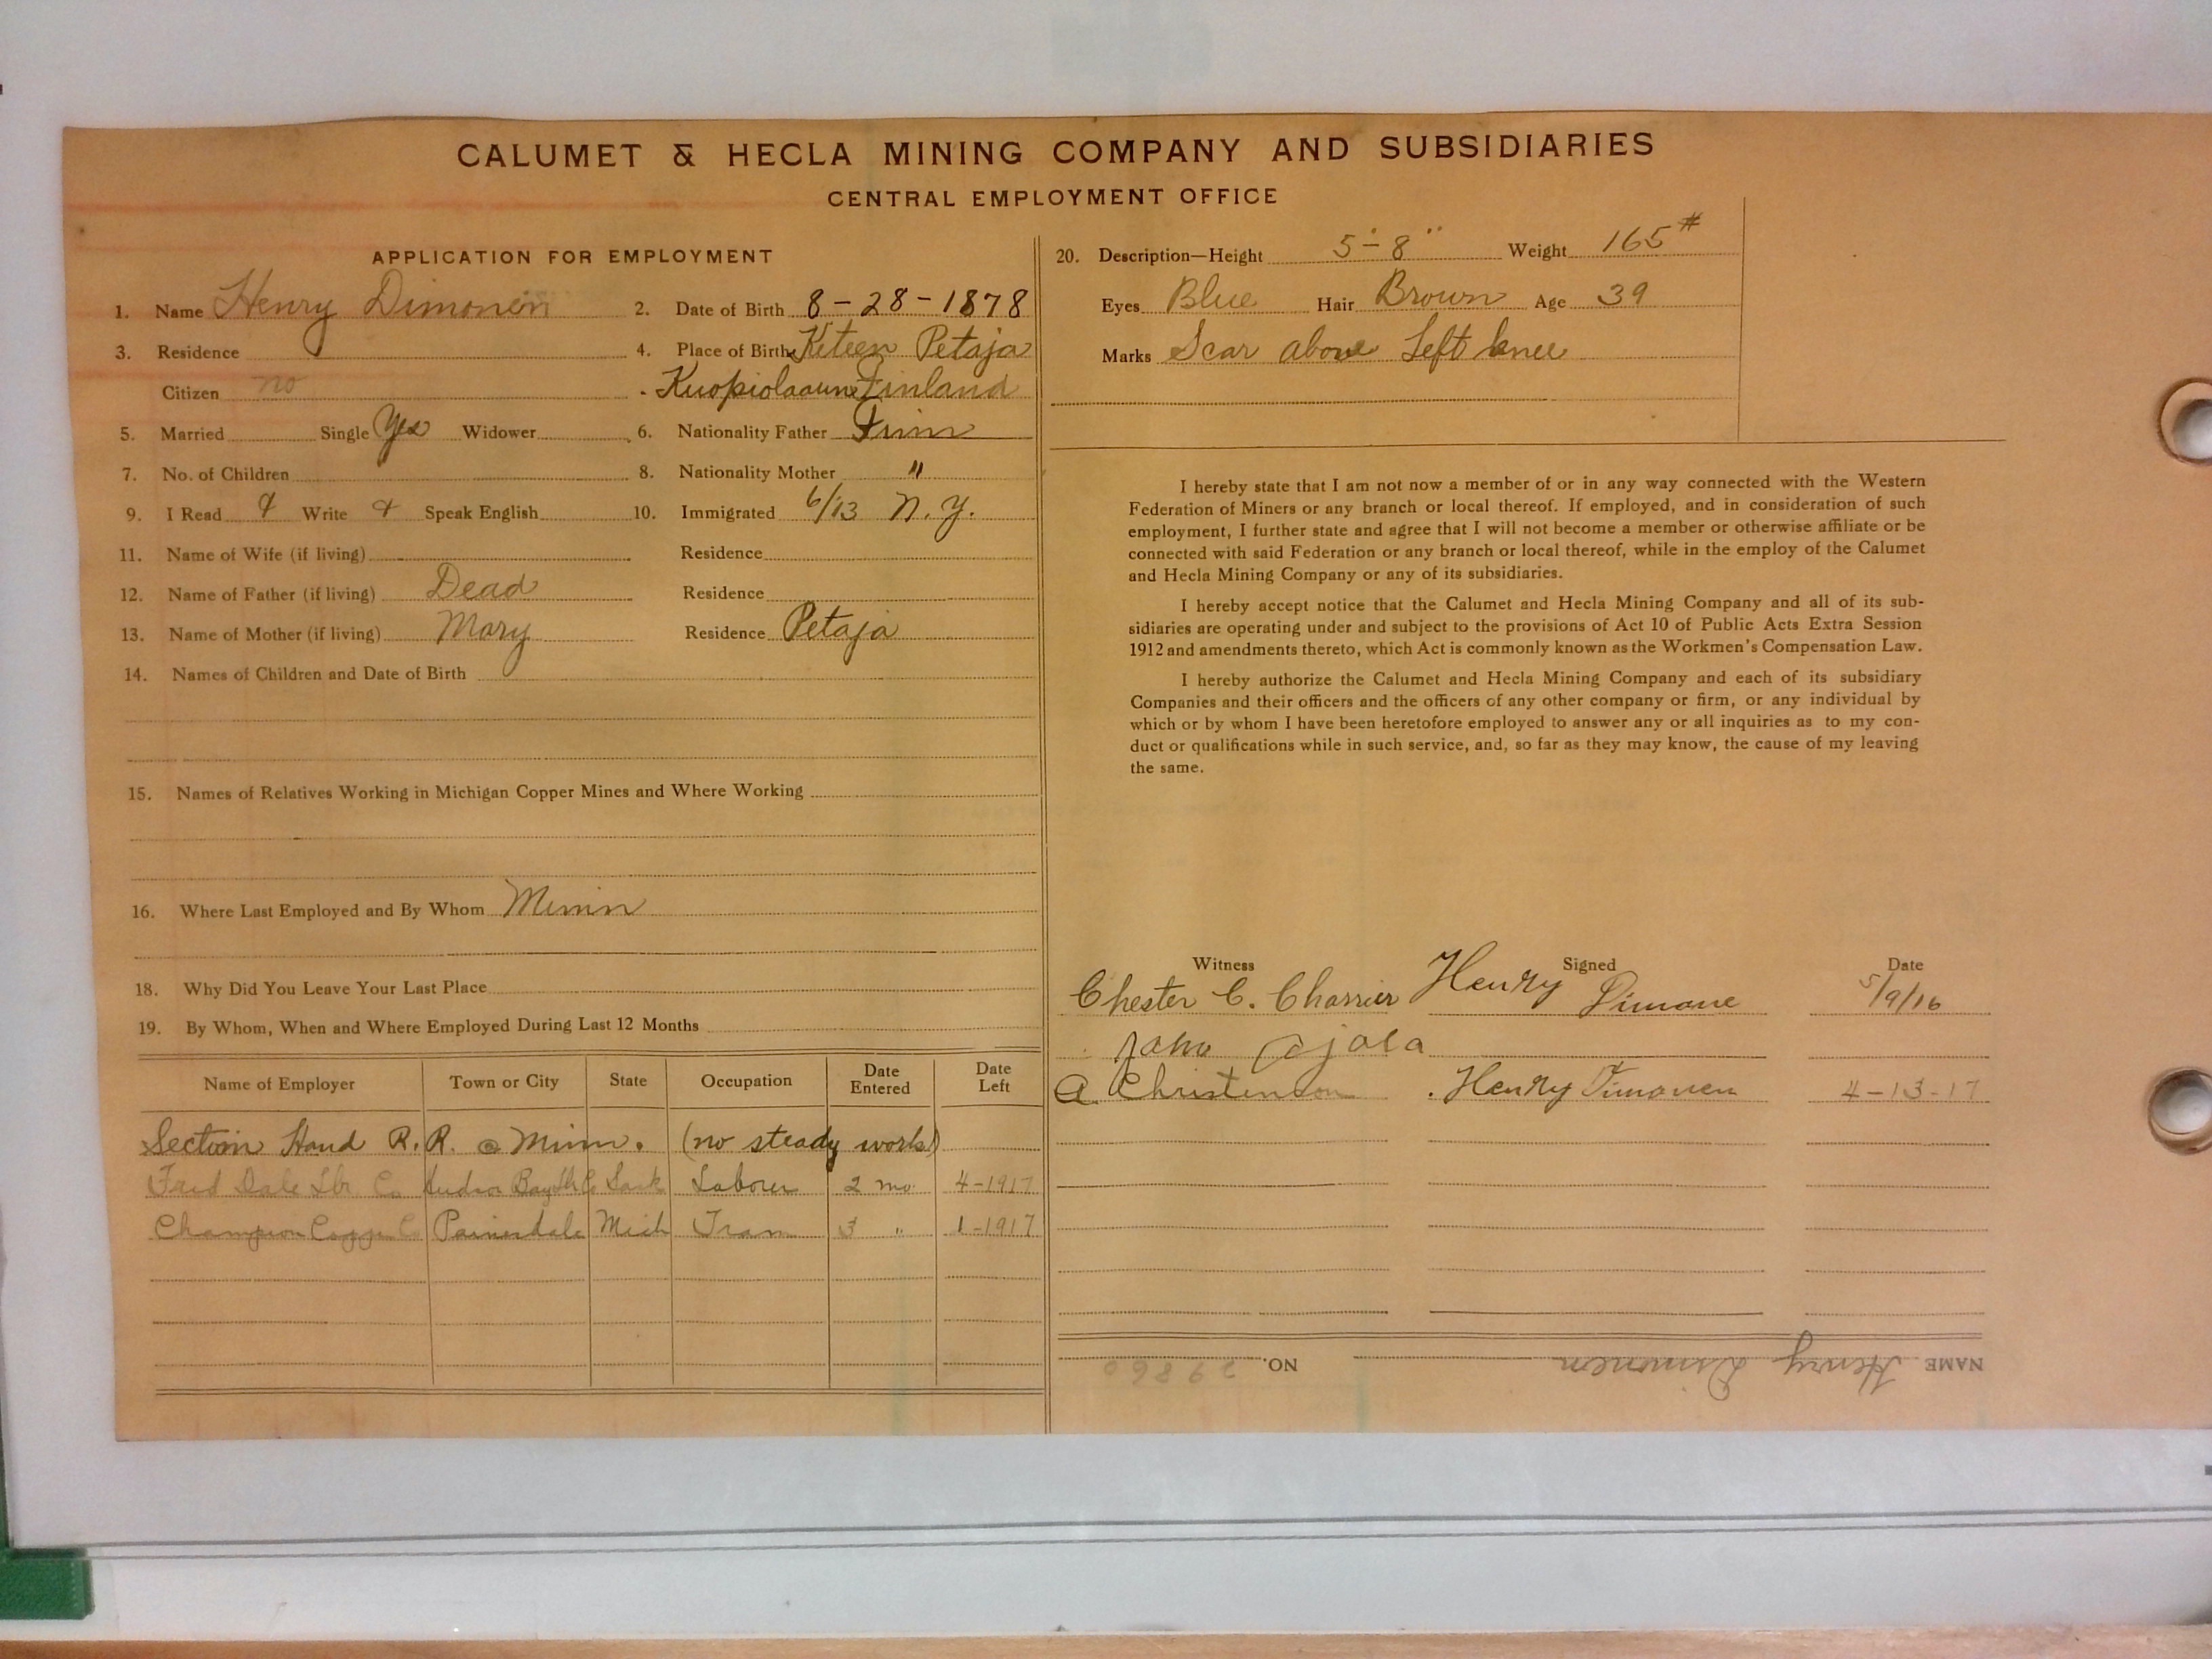 CALUMET & HECLA MINING COMPANY AND SUBSIDIARIES
CENTRAL EMPLOYMENT OFFICE
APPLICATION FOR EMPLOYMENT
1. Name Henry Dimonen 2. Date of Birth 8-28-1878
3. Residence 4. Place of Birth Keteen Petaja
Citizen no Finland
5. Married Single Yes Widower 6. Nationality Father Finn
7. No. of Children 8. Nationality Mother "
9. I Read Write Speak English 10. Immigrated 6/13 N.Y.
11. Name of Wife (if living) Residence
12. Name of Father (if living) Dead Residence
13. Name of Mother (if living) Mary Residence Petaja
14. Names of Children and Date of Birth
15. Names of Relatives Working in Michigan Copper Mines and Where Working
16. Where Last Employed and By Whom Minn
18. Why Did You Leave Your Last Place
19. By Whom, When and Where Employed During Last 12 Months
Name of Employer Town or City State Occupation Date Entered Date Left
Section Hand R.R. @ Minn. (no steady work)
Fred Dale Lbr Co Sask Laborer 2 mo 4-1917
Champion Copper Co Painesdale Mich Tram 3 " 1-1917
20. Description—Height 5'-8" Weight 165#
Eyes Blue Hair Brown Age 39
Marks Scar above Left knee
I hereby state that I am not now a member of or in any way connected with the Western
Federation of Miners or any branch or local thereof. If employed, and in consideration of such
employment, I further state and agree that I will not become a member or otherwise affiliate or be
connected with said Federation or any branch or local thereof, while in the employ of the Calumet
and Hecla Mining Company or any of its subsidiaries.
I hereby accept notice that the Calumet and Hecla Mining Company and all of its sub-
sidiaries are operating under and subject to the provisions of Act 10 of Public Acts Extra Session
1912 and amendments thereto, which Act is commonly known as the Workmen's Compensation Law.
I hereby authorize the Calumet and Hecla Mining Company and each of its subsidiary
Companies and their officers and the officers of any other company or firm, or any individual by
which or by whom I have been heretofore employed to answer any or all inquiries as to my con-
duct or qualifications while in such service, and, so far as they may know, the cause of my leaving
the same.
Witness Signed Date
Chester C. Charrier Henry Dimone 5/9/16
John Ojala
A. Christenson Henry Timonen 4-13-17
NAME Henry Dimonen NO. 29860